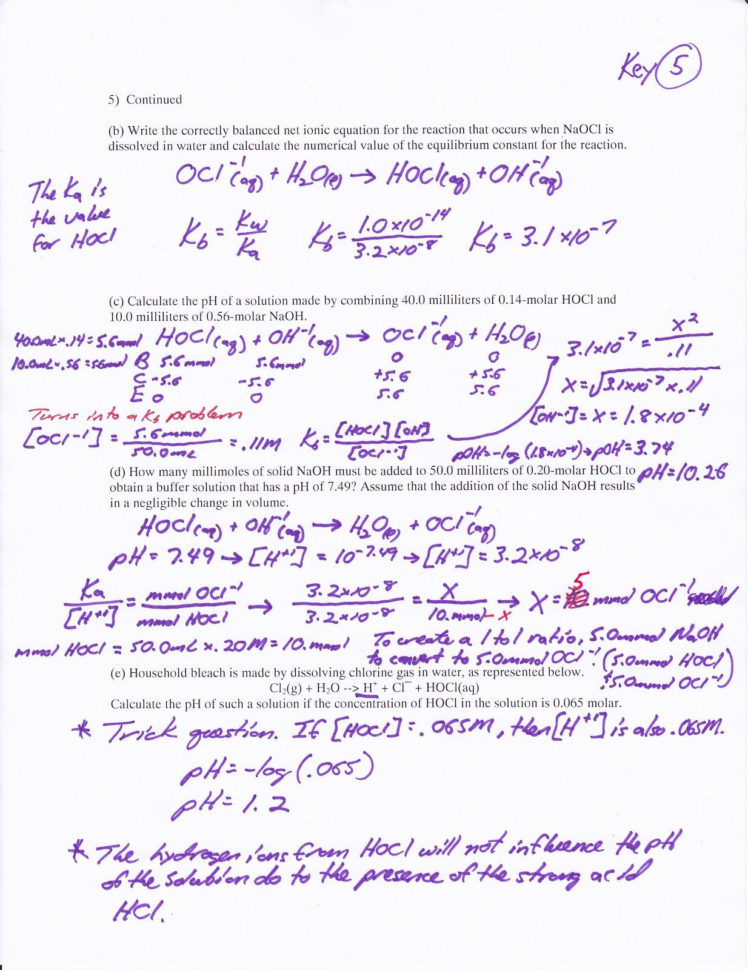 Key 5
5) Continued
(b) Write the correctly balanced net ionic equation for the reaction that occurs when NaOCl is
dissolved in water and calculate the numerical value of the equilibrium constant for the reaction.
The Ka is
the value
for HOCl
OCl⁻¹(aq) + H₂O(l) → HOCl(aq) + OH⁻¹(aq)
Kb = Kw/Ka Kb = 1.0x10⁻¹⁴/3.2x10⁻⁸ Kb = 3.1x10⁻⁷
(c) Calculate the pH of a solution made by combining 40.0 milliliters of 0.14-molar HOCl and
10.0 milliliters of 0.56-molar NaOH.
40.0mL x .14 = 5.6mmol HOCl(aq) + OH⁻¹(aq) → OCl⁻¹(aq) + H₂O(l)
10.0mL x .56 = 56mmol B 5.6mmol 5.6mmol 0 0
C -5.6 -5.6 +5.6 +5.6
E 0 0 5.6 5.6
3.1x10⁻⁷ = x²/.11
X = √3.1x10⁻⁷ x .11
[OH⁻¹] = X = 1.8x10⁻⁴
Turns into a Kb problem
[OCl⁻¹] = 5.6mmol/50.0mL = .11M Kb = [HOCl][OH]/[OCl⁻¹] pOH = -log (1.8x10⁻⁴) → pOH = 3.74
pH = 10.26
(d) How many millimoles of solid NaOH must be added to 50.0 milliliters of 0.20-molar HOCl to
obtain a buffer solution that has a pH of 7.49? Assume that the addition of the solid NaOH results
in a negligible change in volume.
HOCl(aq) + OH⁻¹(aq) → H₂O(l) + OCl⁻¹(aq)
pH = 7.49 → [H⁺¹] = 10⁻⁷·⁴⁹ → [H⁺¹] = 3.2x10⁻⁸
Ka/[H⁺¹] = mmol OCl⁻¹/mmol HOCl → 3.2x10⁻⁸/3.2x10⁻⁸ = X/10.mmol - x → X = 5 mmol OCl⁻¹
mmol HOCl = 50.0mL x .20M = 10.mmol To create a 1 to 1 ratio, 5.0mmol NaOH
to convert to 5.0mmol OCl⁻¹. (5.0mmol HOCl
5.0mmol OCl⁻¹)
(e) Household bleach is made by dissolving chlorine gas in water, as represented below.
Cl₂(g) + H₂O --> H⁺ + Cl⁻ + HOCl(aq)
Calculate the pH of such a solution if the concentration of HOCl in the solution is 0.065 molar.
* Trick question. If [HOCl] = .065M, then [H⁺¹] is also .065M.
pH = -log(.065)
pH = 1.2
* The hydrogen ions from HOCl will not influence the pH
of the solution do to the presence of the strong acid
HCl.